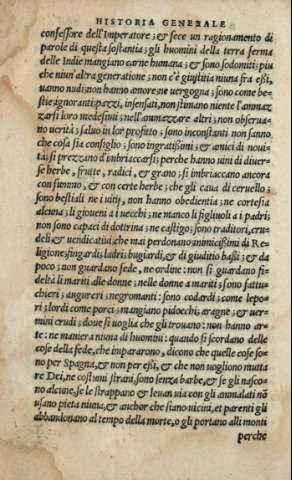 HISTORIA GENERALE
confessore dell'Imperatore; & fece un ragionamento di
parole di questa sostantia; gli huomini della terra ferma
delle Indie mangiano carne humana; & sono sodomiti piu
che niun'altra generatione; non c'è giustitia niuna fra essi,
uanno nudi non hanno amore ne uergogna; sono come be-
stie ignoranti pazzi, insensati, non stimano niente l'ammaz
zarsi loro medesimi; nell'ammazzare altri; non osserua-
no uerità; saluo in lor profitto; sono inconstanti non sanno
che cosa sia consiglio; sono ingratissimi; & amici di noui-
tà; si prezzano d'imbriaccarsi; perche hanno uini di diuer-
se herbe, frutte, radici, & grano; si imbriaccano ancora
con fummo, & con certe herbe; che gli caua di ceruello;
sono bestiali ne i uitij, non hanno obedientia; ne cortesia
alcuna; li gioueni a i uecchi; ne manco li figliuoli a i padri;
non sono capaci di dottrina; ne castigo; sono traditori, cru-
deli & uendicatiui che mai perdonano; inimicissimi di Re-
ligione; singardi; ladri; bugiardi, & di giuditio bassi; & da
poco; non guardano fede, ne ordine: non si guardano fi-
deltà li mariti alle donne; nelle donne a mariti; sono fattuc
chieri; augureri; negromanti: sono codardi; come lepo-
ri; lordi come porci; mangiano pidocchi; aragne; & uer-
mini crudi; doue si uoglia che gli trouano: non hanno ar-
te: ne maniera niuna di huomini: quando si scordano delle
cose della fede, che impararono, dicono che quelle cose so-
no per Spagna, & non per essi, & che non uogliono mutta
re Dei, ne costumi strani, sono senza barbe, & se gli nasco-
no alcune, se le strappano & leuan uia con gli ammalati nõ
usano pieta niuna, & anchor che siano uicini, et parenti gli
abbandonano al tempo della morte, o gli portano alli monti
perche